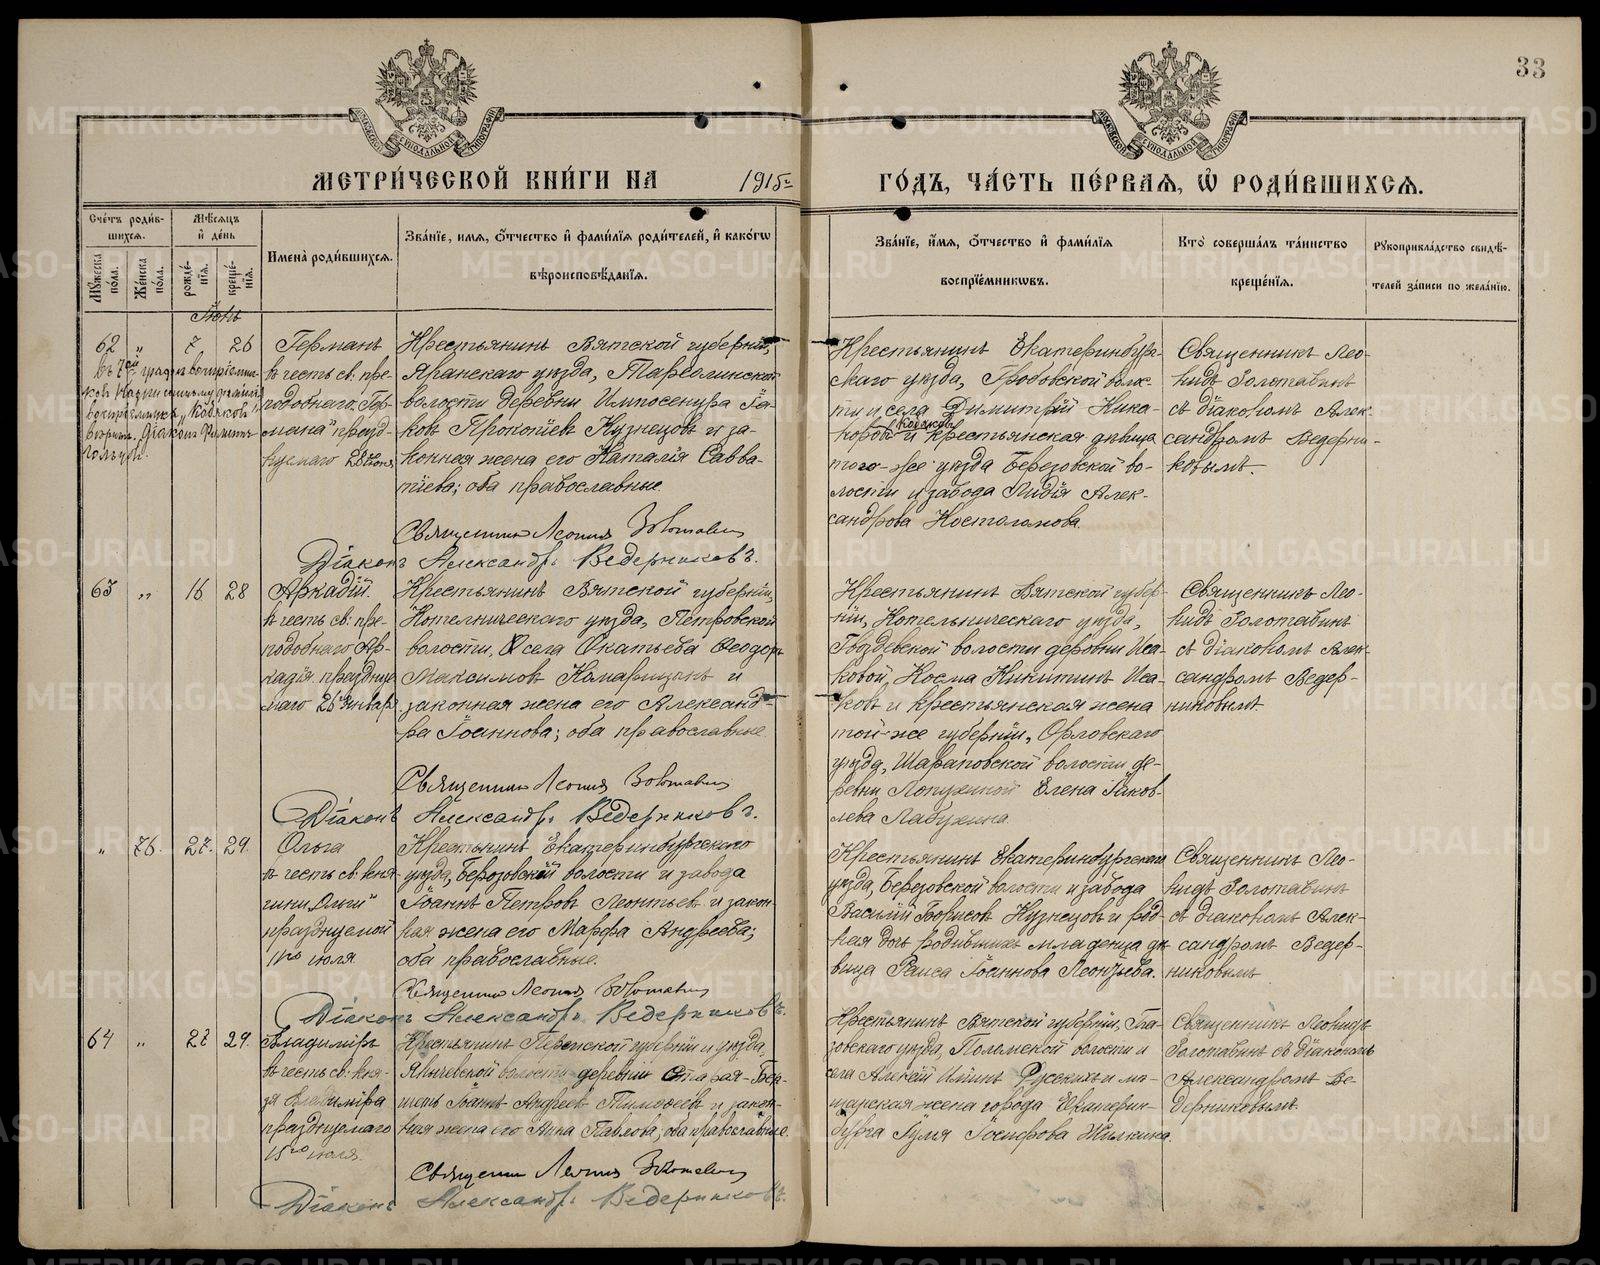 33
МОСКОВСКОЙ СѴНОДАЛЬНОЙ ТИПОГРАФІИ
МОСКОВСКОЙ СѴНОДАЛЬНОЙ ТИПОГРАФІИ
МЕТРИ́ЧЕСКОЙ КНИ́ГИ НА 1915 г. ГО́ДЪ, ЧА́СТЬ ПЕ́РВАЯ, Ѡ҆ РОДИ́ВШИХСЯ.
Сче́тъ роди́в-
шихся.
Мѣ́сяцъ
и҆ де́нь
Мꙋ́жеска по́ла.
Же́нска по́ла.
рожде́-
нїя.
креще́-
нїя.
Имена̀ роди́вшихся.
Зва́нїе, имя, ѻ҆́тчество и҆ фами́лїя роди́телей, и҆ како́гѡ
вѣроисповѣ́данїя.
Зва́нїе, и҆́мя, ѻ҆́тчество и҆ фами́лїя
воспрїе́мникѡвъ.
Кто̀ соверша́лъ та́инство
креще́нїя.
Рꙋкоприкла́дство свидѣ́-
телей за́писи по жела́нїю.
Іюнь
62 „ 7 26
въ 7ой графѣ воспріемни-
ковъ
Германъ
въ честь св: пре-
подобнаго „Гер-
мана“ празд-
нуемаго 28 Іюня.
Крестьянинъ Вятской губерніи,
Яранскаго уѣзда,
волости деревни
ковъ Прокопіевъ Кузнецовъ и за-
конная жена его Наталія Савва-
тіева; оба православные.
Священникъ Леонидъ Золотавинъ
Діаконъ Александръ Ведерниковъ.
Крестьянинъ Екатеринбург-
скаго уѣзда, Гробовской волос-
ти и села Димитрій Ника-
норовъ и крестьянская дѣвица
того-же уѣзда Березовской во-
лости и завода Лидія Алек-
сандрова
Священникъ Лео-
нидъ Золотавинъ
съ діакономъ Алек-
сандромъ Ведерни-
ковымъ.
63 „ 16 28
Аркадій.
въ честь св: пре-
подобнаго Ар-
кадія праздну-
маго 26 Января
Крестьянинъ Вятской губерніи,
Котельническаго уѣзда, Петровской
волости, села Окатьева Ѳеодоръ
Максимовъ и
законная жена его Александ-
ра Іоаннова; оба православные.
Священникъ Леонидъ Золотавинъ
Діаконъ Александръ Ведерниковъ.
Крестьянинъ Вятской губер-
ніи, Котельническаго уѣзда,
Гвоздевской волости деревни Иса-
ковой, Косма Никитинъ Иса-
ковъ и крестьянская жена
той-же губерніи, Орловскаго
уѣзда, Шараповской волости де-
ревни Елена Іаков-
лева
Священникъ Лео-
нидъ Золотавинъ
съ діакономъ Алек-
сандромъ Ведер-
никовымъ.
„ 76. 27. 29.
Ольга
въ честь св: кня-
гини „Ольги“
празднуемой
11го іюля
Крестьянинъ Екатеринбургскаго
уѣзда, Березовской волости и завода
Іоаннъ Петровъ Леонтьевъ и закон-
ная жена его Марфа Андреева;
оба православные.
Священникъ Леонидъ Золотавинъ
Діаконъ Александръ Ведерниковъ.
Крестьянинъ Екатеринбургскаго
уѣзда, Березовской волости и завода
Василій Борисовъ Кузнецовъ и род-
ная дочь родившихъ младенца дѣ-
вица Раиса Іоаннова Леонтьева.
Священникъ Лео-
нидъ Золотавинъ
съ діакономъ Алек-
сандромъ Ведер-
никовымъ
64 „ 27 29.
Владиміръ
въ честь св: кня-
зя Владиміра
празднуемаго
15го іюля.
Крестьянинъ Пермской губерніи и уѣзда,
Янычевской волости деревни Старая-
Іоаннъ Андреевъ Тимоѳеевъ и закон-
ная жена его Анна Павлова; оба православные.
Священникъ Леонидъ Золотавинъ
Діаконъ Александръ Ведерниковъ.
Крестьянинъ Вятской губерніи, Гла-
зовскаго уѣзда, Поломской волости и
села Алексій Ильинъ Русскихъ и мѣ-
щанская жена города Екатерин-
бурга Іулія Іосифова Жилкина.
Священникъ Леонидъ
Золотавинъ съ діакономъ
Александромъ Ве-
дерниковымъ.
METRIKI.GASO-URAL.RU